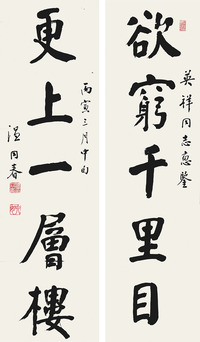 英祥同志惠鑒
欲窮千里目
更上一層樓
丙寅三月中旬
溫同春